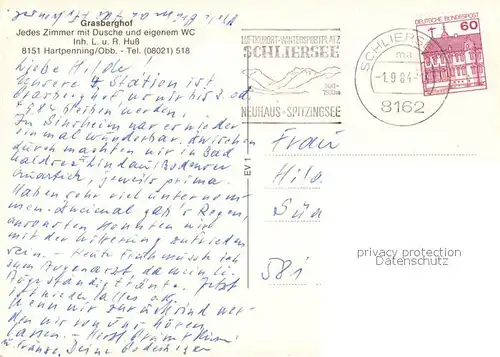 Grasberghof
Jedes Zimmer mit Dusche und eigenem WC
Inh. L. u. R. Huß
8151 Hartpenning/Obb. - Tel. (08021) 518
Liebe Hilde!
Unsere Station ist
wir bis 2. od.
bleiben werden.
In Sinsheim war es wieder
einmal wunderbar, dazwischen
durch machten wir in Bad
Lindau Bodensee
Quartier, jeweils prima.
Haben sehr viel unternom-
men. Zweimal gab's Regen,
ansonsten konnten wir
mit der Witterung zufrieden
sein. - Heute früh musste ich
zum Augenarzt, da mein li.
Auge ständig tränte. Jetzt
ist wieder alles ok.
Wenn wir zurück sind wer-
den wir von uns hören
lassen. - Herzl. Grüße + Küsse
Deine
LUFTKURORT-WINTERSPORTPLATZ
SCHLIERSEE
800-
1700m
NEUHAUS + SPITZINGSEE
SCHLIERSEE
ma
-1.9.84
8162
DEUTSCHE BUNDESPOST
60
EV 1
Frau
Hild
581
privacy protection
Datenschutz